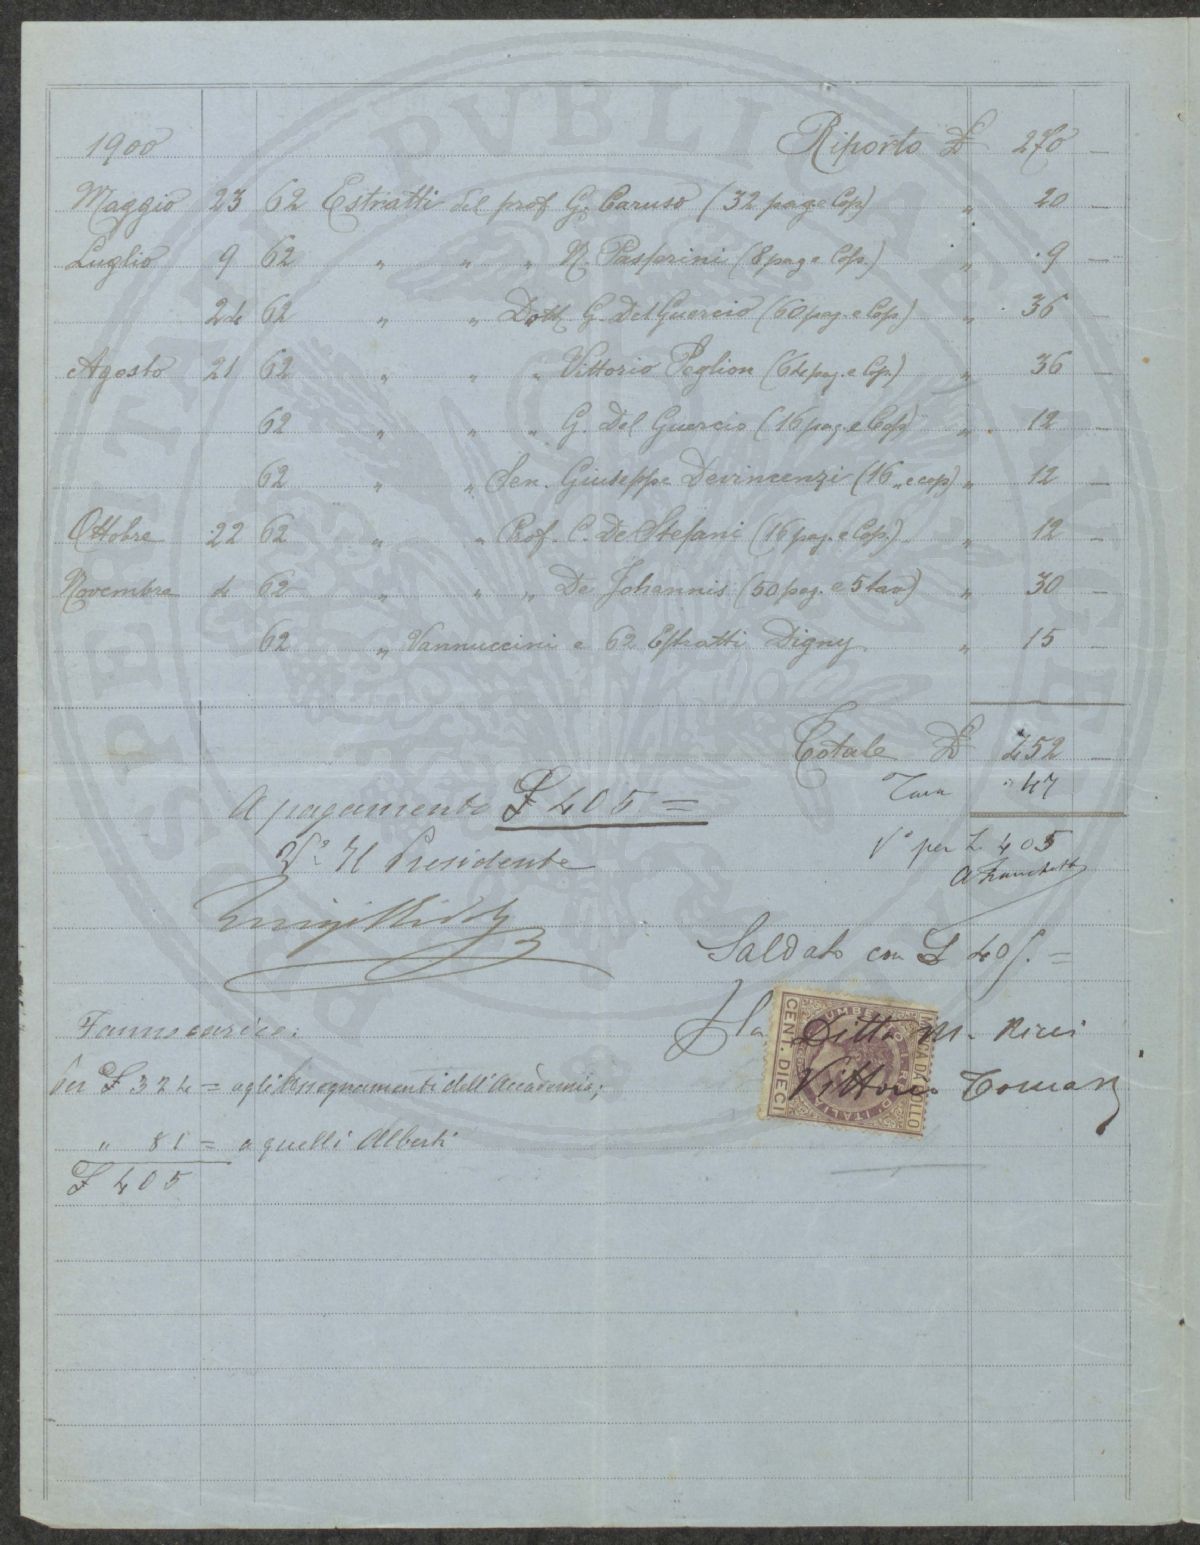 1900 Riporto £ 270 —
Maggio 23 62 Estratti del prof G. Caruso (32 pag e Cop) " 20 —
Luglio 9 62 " " " N. Passerini (8 pag e Cop.) " 9 —
24 62 " " Dott. G. Del Guercio (60 pag. e Cop.) " 36 —
Agosto 21 62 " " " Vittorio Peglion (64 pag. e Cop.) " 36 —
62 " " " G. Del Guercio (16 pag. e Cop) " 12 —
62 " " Sen. Giuseppe Devincenzi (16 " e cop) " 12 —
Ottobre 22 62 " " Prof. C. De Stefani (16 pag. e Cop.) " 12 —
Novembre 4 62 " " " De Johannis (50 pag. e 5 tav) " 30 —
62 " Vannuccini e 62 Estratti Digny " 15 —
Totale £ 452 —
Tara " 47
A pagamento £ 405 =
V° per L 405
V° Il Presidente
A Franchetti
Luigi Ridolfi
Saldato con £ 405. =
Fanno carico:
p la Ditta M. Ricci
Per £ 324 = agli Assegnamenti dell'Accademia;
Vittorio Tomasi
" 81 = a quelli Alberti
£ 405
MARCA DA BOLLO
UMBERTO I RE D'ITALIA
CENT. DIECI
PROSPERITATI PVBLICAE AVGENDAE